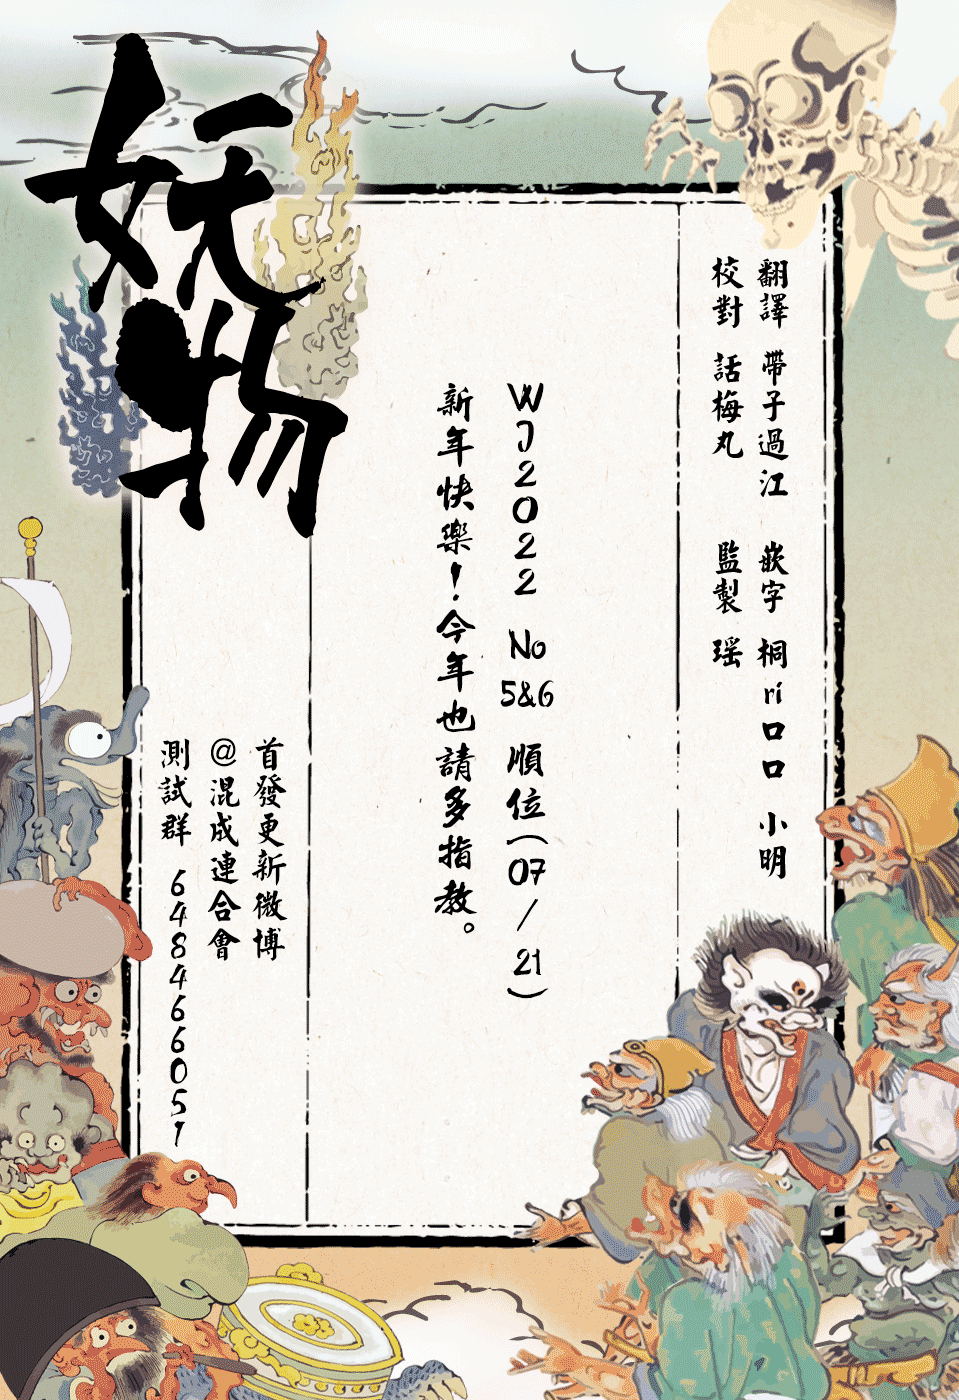 翻譯 帶子過江 嵌字 桐ri口口 小明
校對 話梅丸 監製 瑶
WJ2022 No 5&6 順位(07/21)
新年快樂!今年也請多指教。
首發更新微博
@混成連合會
測試群 648466051
妖物